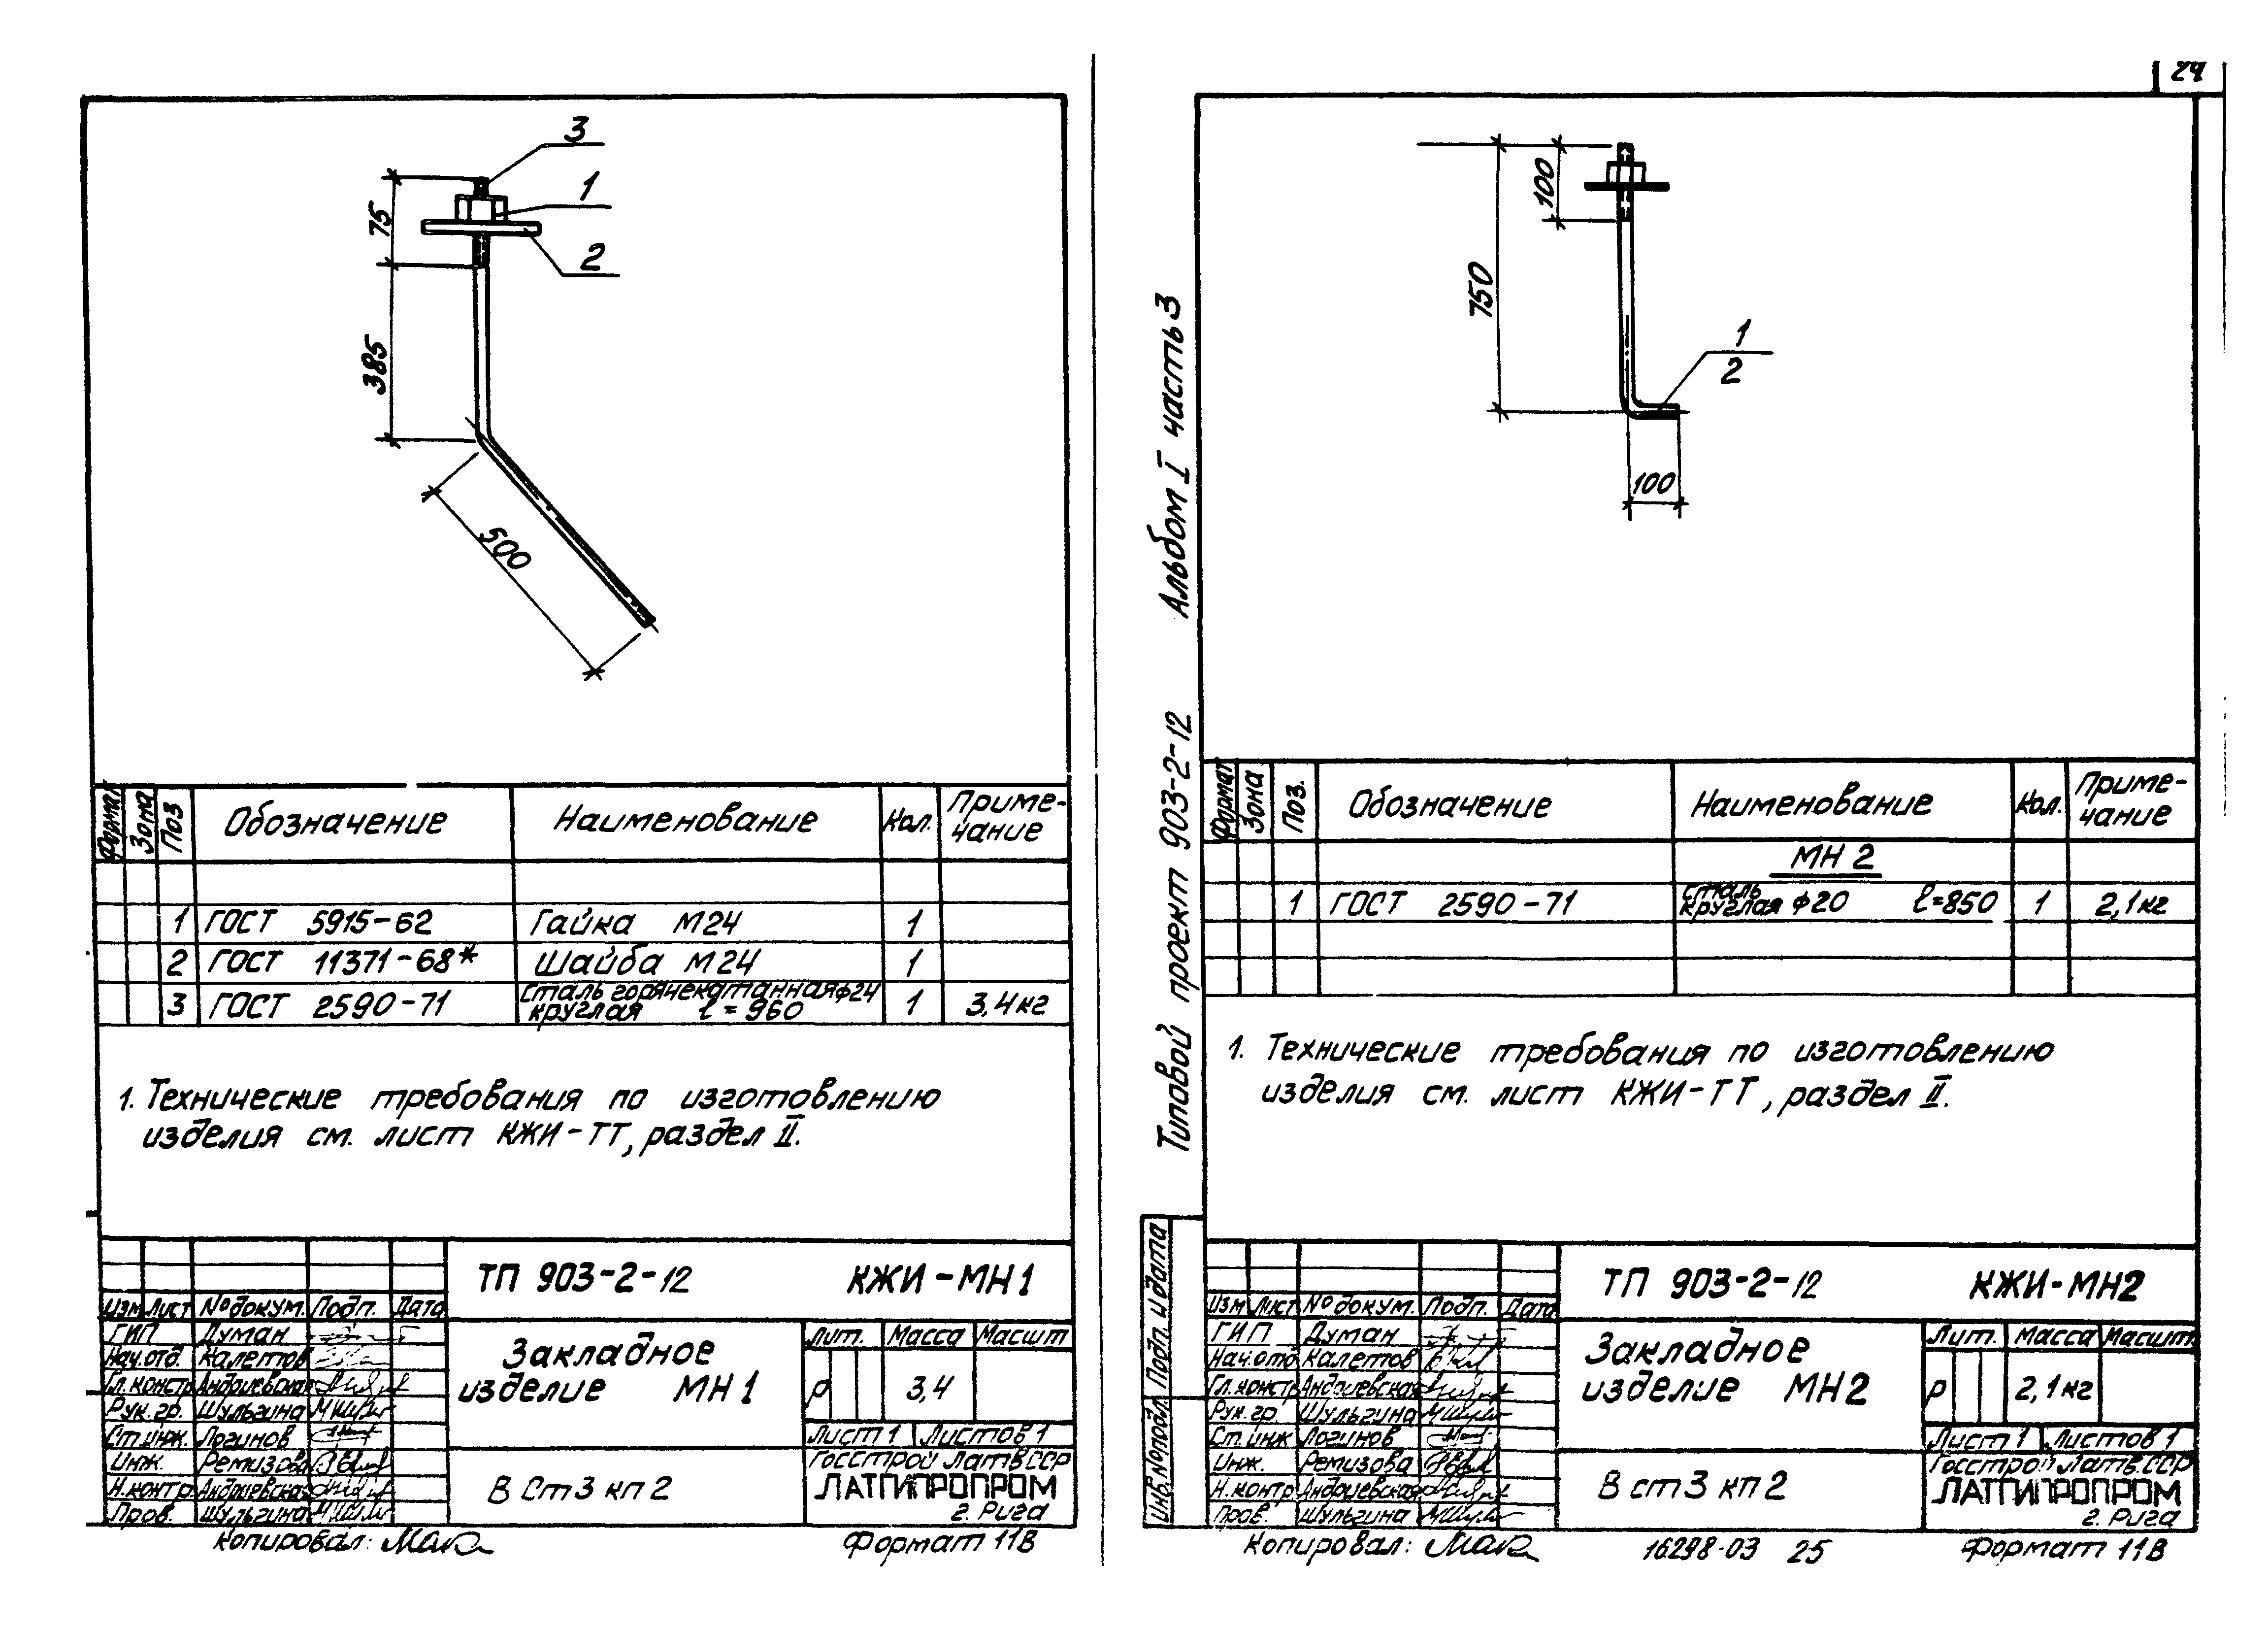 24
3
1
2
75
385
500
Формат Зона Поз Обозначение Наименование Кол. Приме-
чание
1 ГОСТ 5915-62 Гайка М24 1
2 ГОСТ 11371-68* Шайба М24 1
3 ГОСТ 2590-71 Сталь горячекатанная ф24
круглая ℓ=960 1 3,4кг
1. Технические требования по изготовлению
изделия см. лист КЖИ-ТТ, раздел II.
ТП 903-2-12 КЖИ-МН1
Изм Лист № докум. Подп. Дата
ГИП Думан
Нач.отд. Калетов
Гл.констр Андриевская
Рук.гр. Шульгина
Ст.инж. Логинов
Инж. Ремизова
Н.контр Андриевская
Пров. Шульгина
Закладное
изделие МН1
Лит. Масса Масшт
Р 3,4
Лист 1 Листов 1
В Ст3 кп2
Госстрой Латв.ССР
ЛАТГИПРОПРОМ
г. Рига
Копировал: Формат 11В
Типовой проект 903-2-12 Альбом I часть 3
Инв.№подл. Подп. и дата
100
750
1
2
100
Формат Зона Поз. Обозначение Наименование Кол. Приме-
чание
МН 2
1 ГОСТ 2590-71 сталь
круглая ф20 ℓ=850 1 2,1кг
1. Технические требования по изготовлению
изделия см. лист КЖИ-ТТ, раздел II.
ТП 903-2-12 КЖИ-МН2
Изм Лист № докум. Подп. Дата
ГИП Думан
Нач.отд Калетов
Гл.констр Андриевская
Рук.гр. Шульгина
Ст.инж Логинов
Инж. Ремизова
Н.контр Андриевская
Пров. Шульгина
Закладное
изделие МН2
Лит. Масса Масшт
Р 2,1кг
Лист 1 Листов 1
В ст3 кп2
Госстрой Латв.ССР
ЛАТГИПРОПРОМ
г. Рига
Копировал: 16298-03 25 Формат 11В